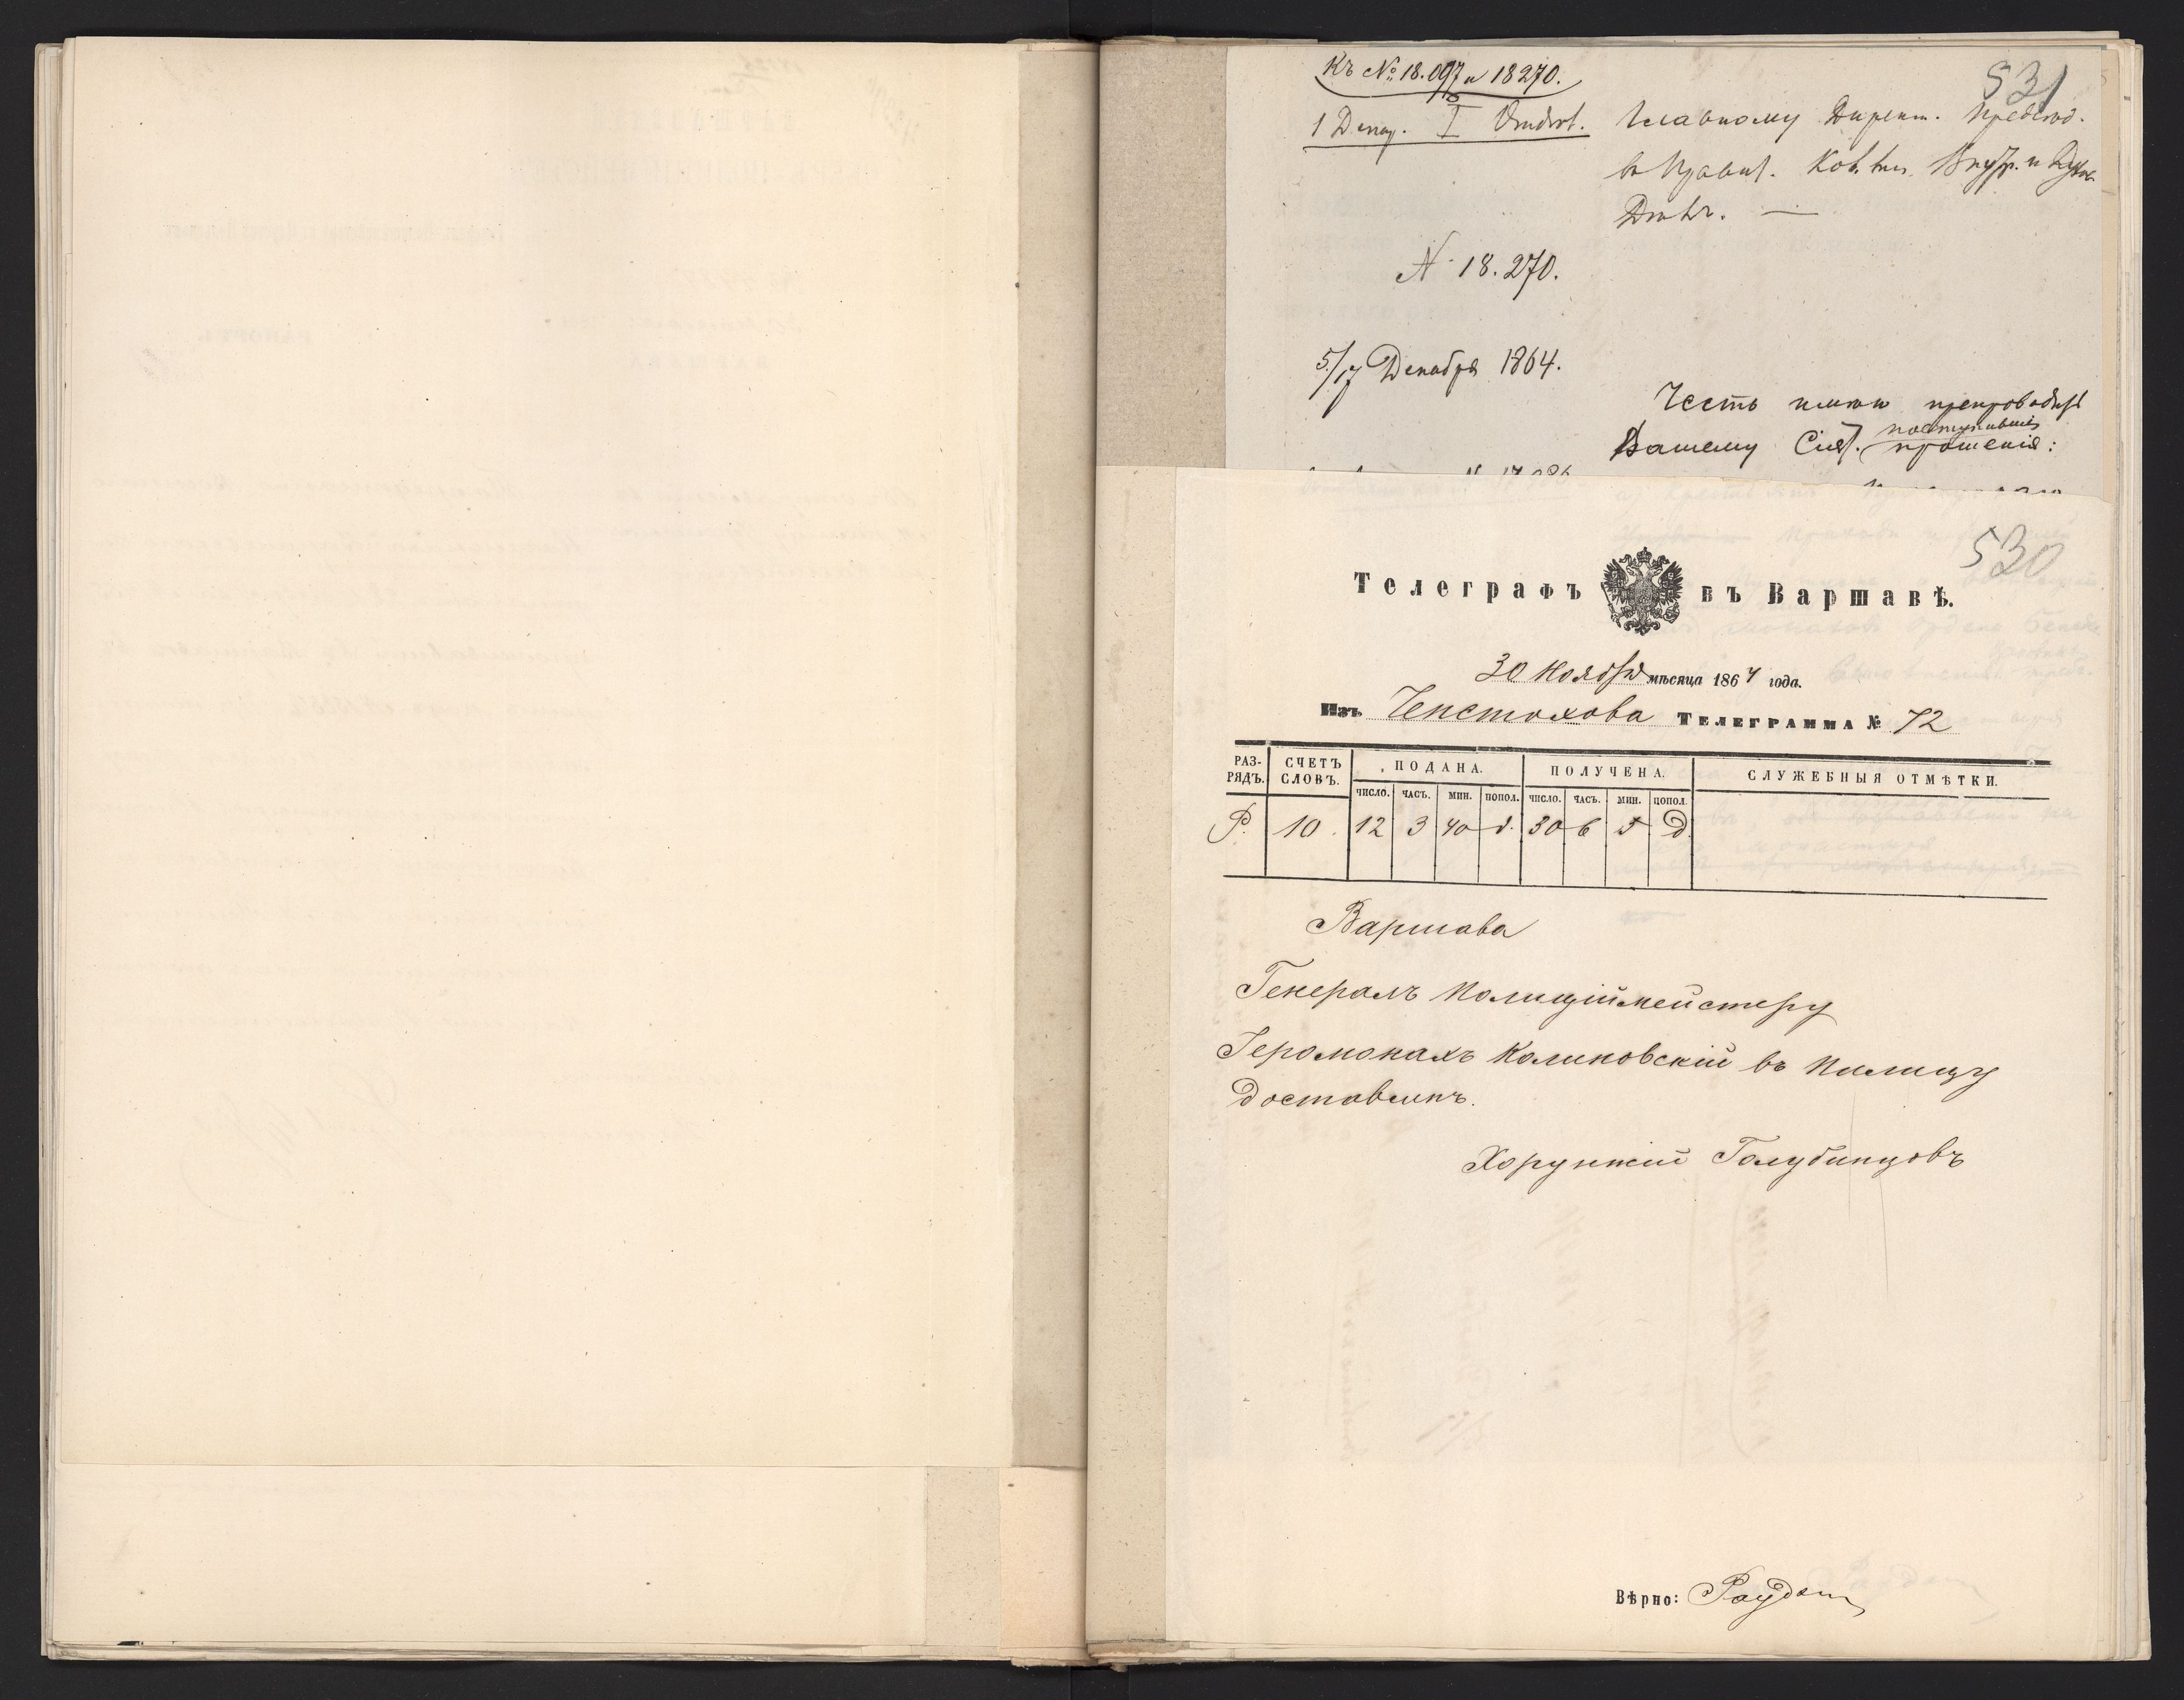 Къ № 18.097 и 18270.
531
1 Декаб. I Отдѣл.
Главному Директ. Предсѣд.
въ Правит. Ком. Внутр. и Духов.
Дѣлъ. —
№ 18.270.
5/17 Декабря 1864.
Честь имѣю препроводить
поступившія
Вашему Сіят. прошенія:
530
Телеграфъ въ Варшавѣ.
30 Ноября мѣсяца 1864 года.
Изъ Ченстохова Телеграмма № 72
РАЗ-РЯДЪ. СЧЕТЪ СЛОВЪ. ПОДАНА. ПОЛУЧЕНА. СЛУЖЕБНЫЯ ОТМѢТКИ.
ЧИСЛО. ЧАСЪ. МИН. ПОПОЛ. ЧИСЛО. ЧАСЪ. МИН. ПОПОЛ.
Р. 10. 12 3 40 д. 30 6 5 Д
Варшава
Генералъ Полиціймейстеру
Іеромонахъ Коликовскій въ Пилицу
Доставленъ.
Хорунжій Голубинцовъ
Вѣрно: